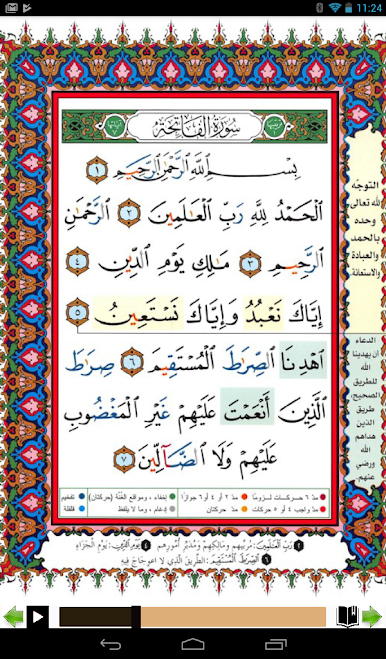 11:24
سُورَةُ الفَاتِحَةِ
بِسْمِ ٱللَّهِ ٱلرَّحْمَٰنِ ٱلرَّحِيمِ ١
ٱلْحَمْدُ لِلَّهِ رَبِّ ٱلْعَٰلَمِينَ ٢ ٱلرَّحْمَٰنِ
ٱلرَّحِيمِ ٣ مَٰلِكِ يَوْمِ ٱلدِّينِ ٤
إِيَّاكَ نَعْبُدُ وَإِيَّاكَ نَسْتَعِينُ ٥
ٱهْدِنَا ٱلصِّرَٰطَ ٱلْمُسْتَقِيمَ ٦ صِرَٰطَ
ٱلَّذِينَ أَنْعَمْتَ عَلَيْهِمْ غَيْرِ ٱلْمَغْضُوبِ
عَلَيْهِمْ وَلَا ٱلضَّآلِّينَ ٧
التوجّه
لله تعالى
وحده
بالحمد
والعبادة
والاستعانة.
الدعاء
أن يهدينا
الله
للطريق
الصحيح،
طريق
الذين
هداهم
الله
ورضي
عنهم
مدّ ٦ حركات لزوماً مدّ ٢ أو ٤ أو ٦ جوازاً إخفاء، ومواقع الغُنَّة (حركتان) تفخيم
مدّ واجب ٤ أو ٥ حركات مدّ حركتان إدغام، وما لا يلفظ قلقلة
٢ رَبِّ الْعَالَمِينَ: مُرَبِّيهِم وَمَالِكِهِم وَمُدَبِّرِ أُمُورِهِم ٤ يَوْمِ الدِّينِ: يَوْمِ الْجَزَاءِ
٦ الصِّرَاطَ الْمُسْتَقِيمَ: الطَّرِيقَ الَّذِي لَا اعْوِجَاجَ فِيهِ